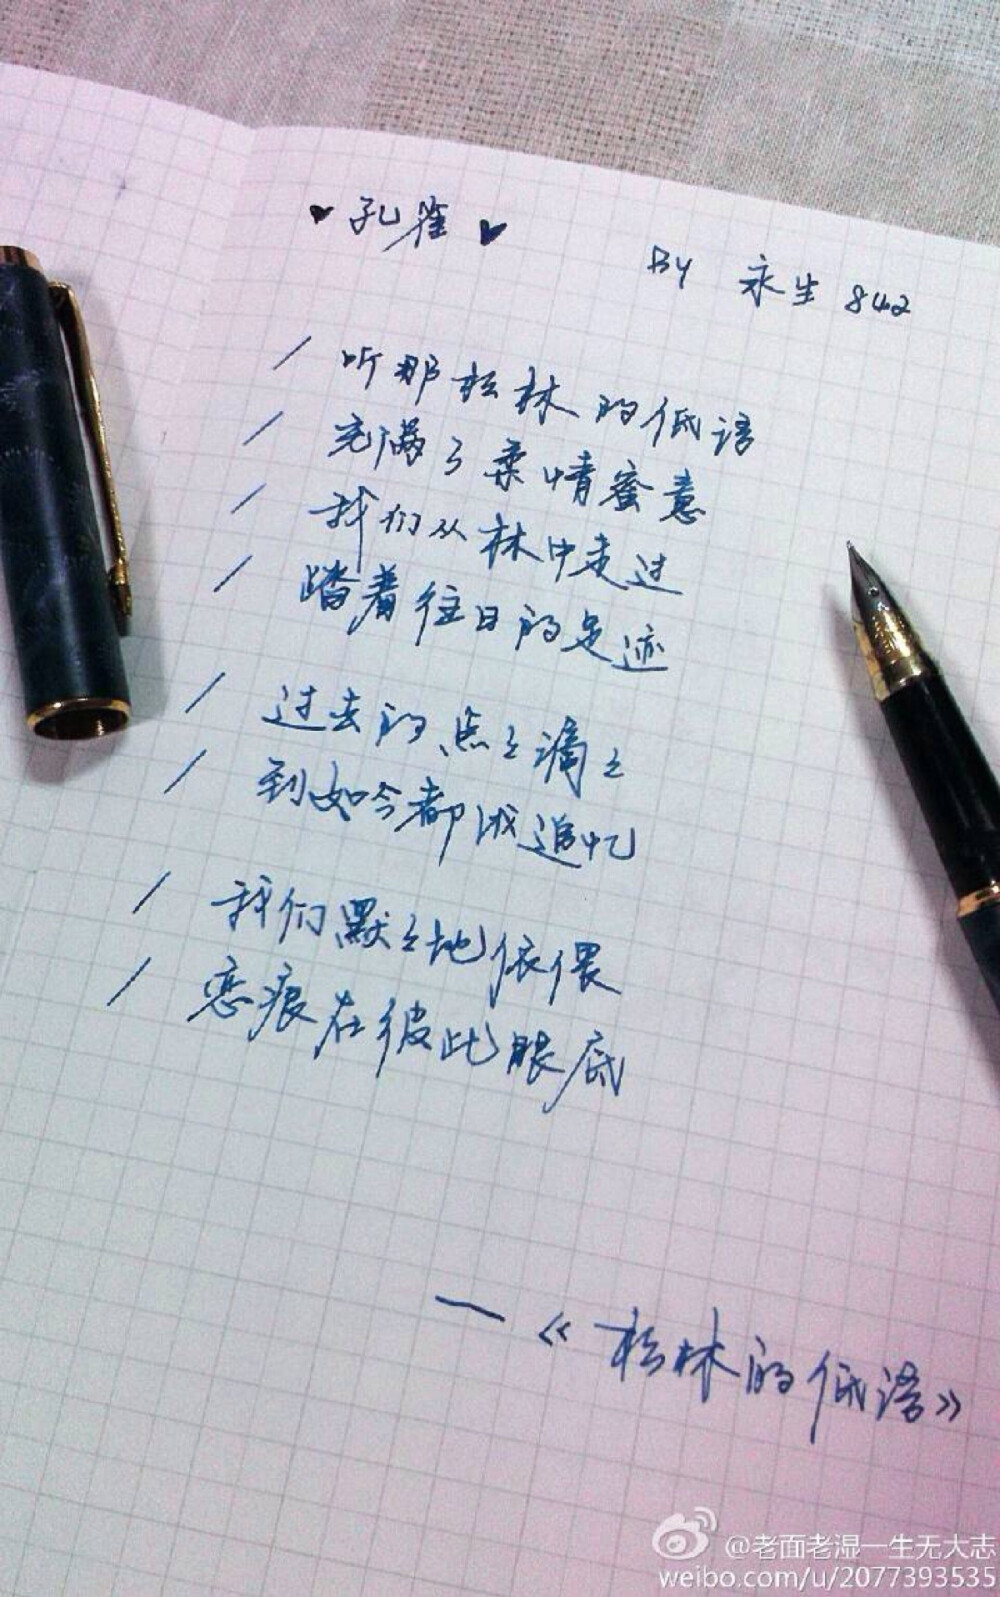 ♥ 孔雀 ♥
By 永生 842
/ 听那松林的低语
/ 充满了柔情蜜意
/ 我们从林中走过
/ 踏着往日的足迹
/ 过去的点々滴々
/ 到如今都成追忆
/ 我们默々地依偎
/ 恋痕在彼此眼底
—《松林的低语》
@老面老湿一生无大志
weibo.com/u/2077393535